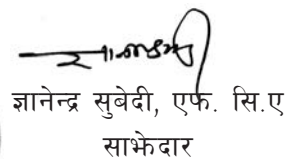 ज्ञानेन्द्र सुबेदी, एफ. सि.ए
साझेदार